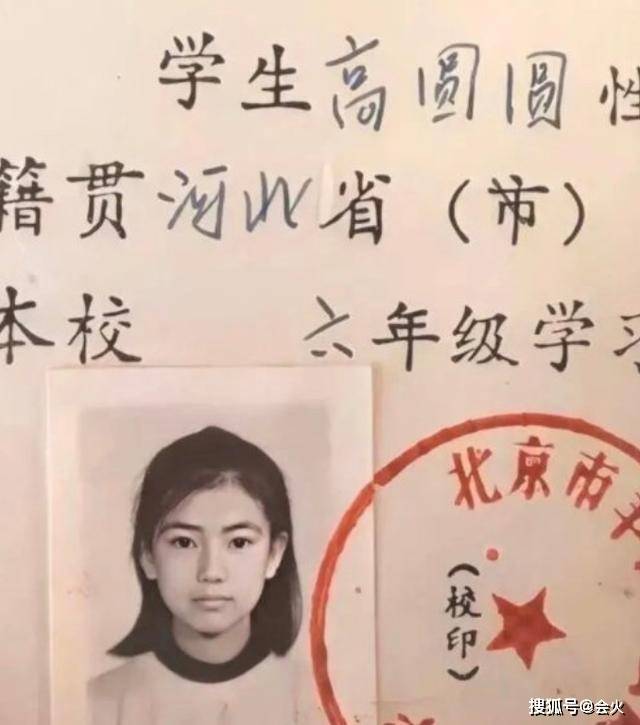 学生高圆圆性
籍贯河北省（市）
本校 六年级学习
北京市
（校印）
搜狐号@会火